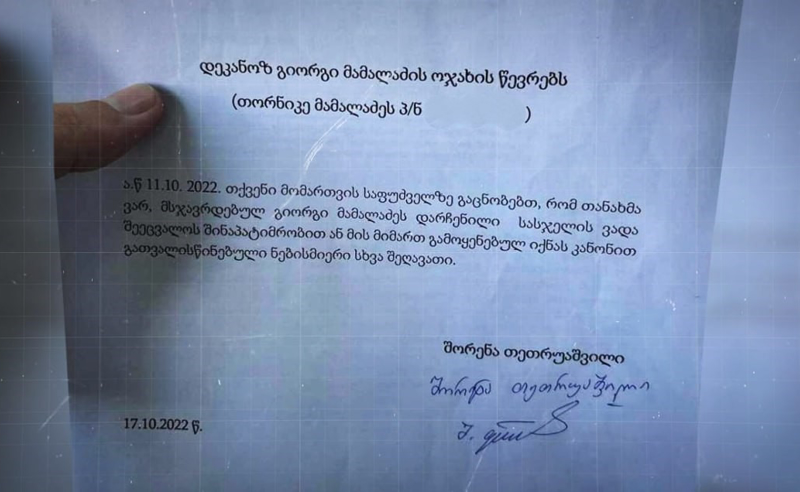 დეკანოზ გიორგი მამალაძის ოჯახის წევრებს
(თორნიკე მამალაძეს პ/ნ )
ა.წ 11.10. 2022. თქვენი მომართვის საფუძველზე გაცნობებთ, რომ თანახმა
ვარ, მსჯავრდებულ გიორგი მამალაძეს დარჩენილი სასჯელის ვადა
შეეცვალოს შინაპატიმრობით ან მის მიმართ გამოყენებულ იქნას კანონით
გათვალისწინებული ნებისმიერი სხვა შეღავათი.
შორენა თეთრუაშვილი
შორენა თეთრუაშვილი
17.10.2022 წ.